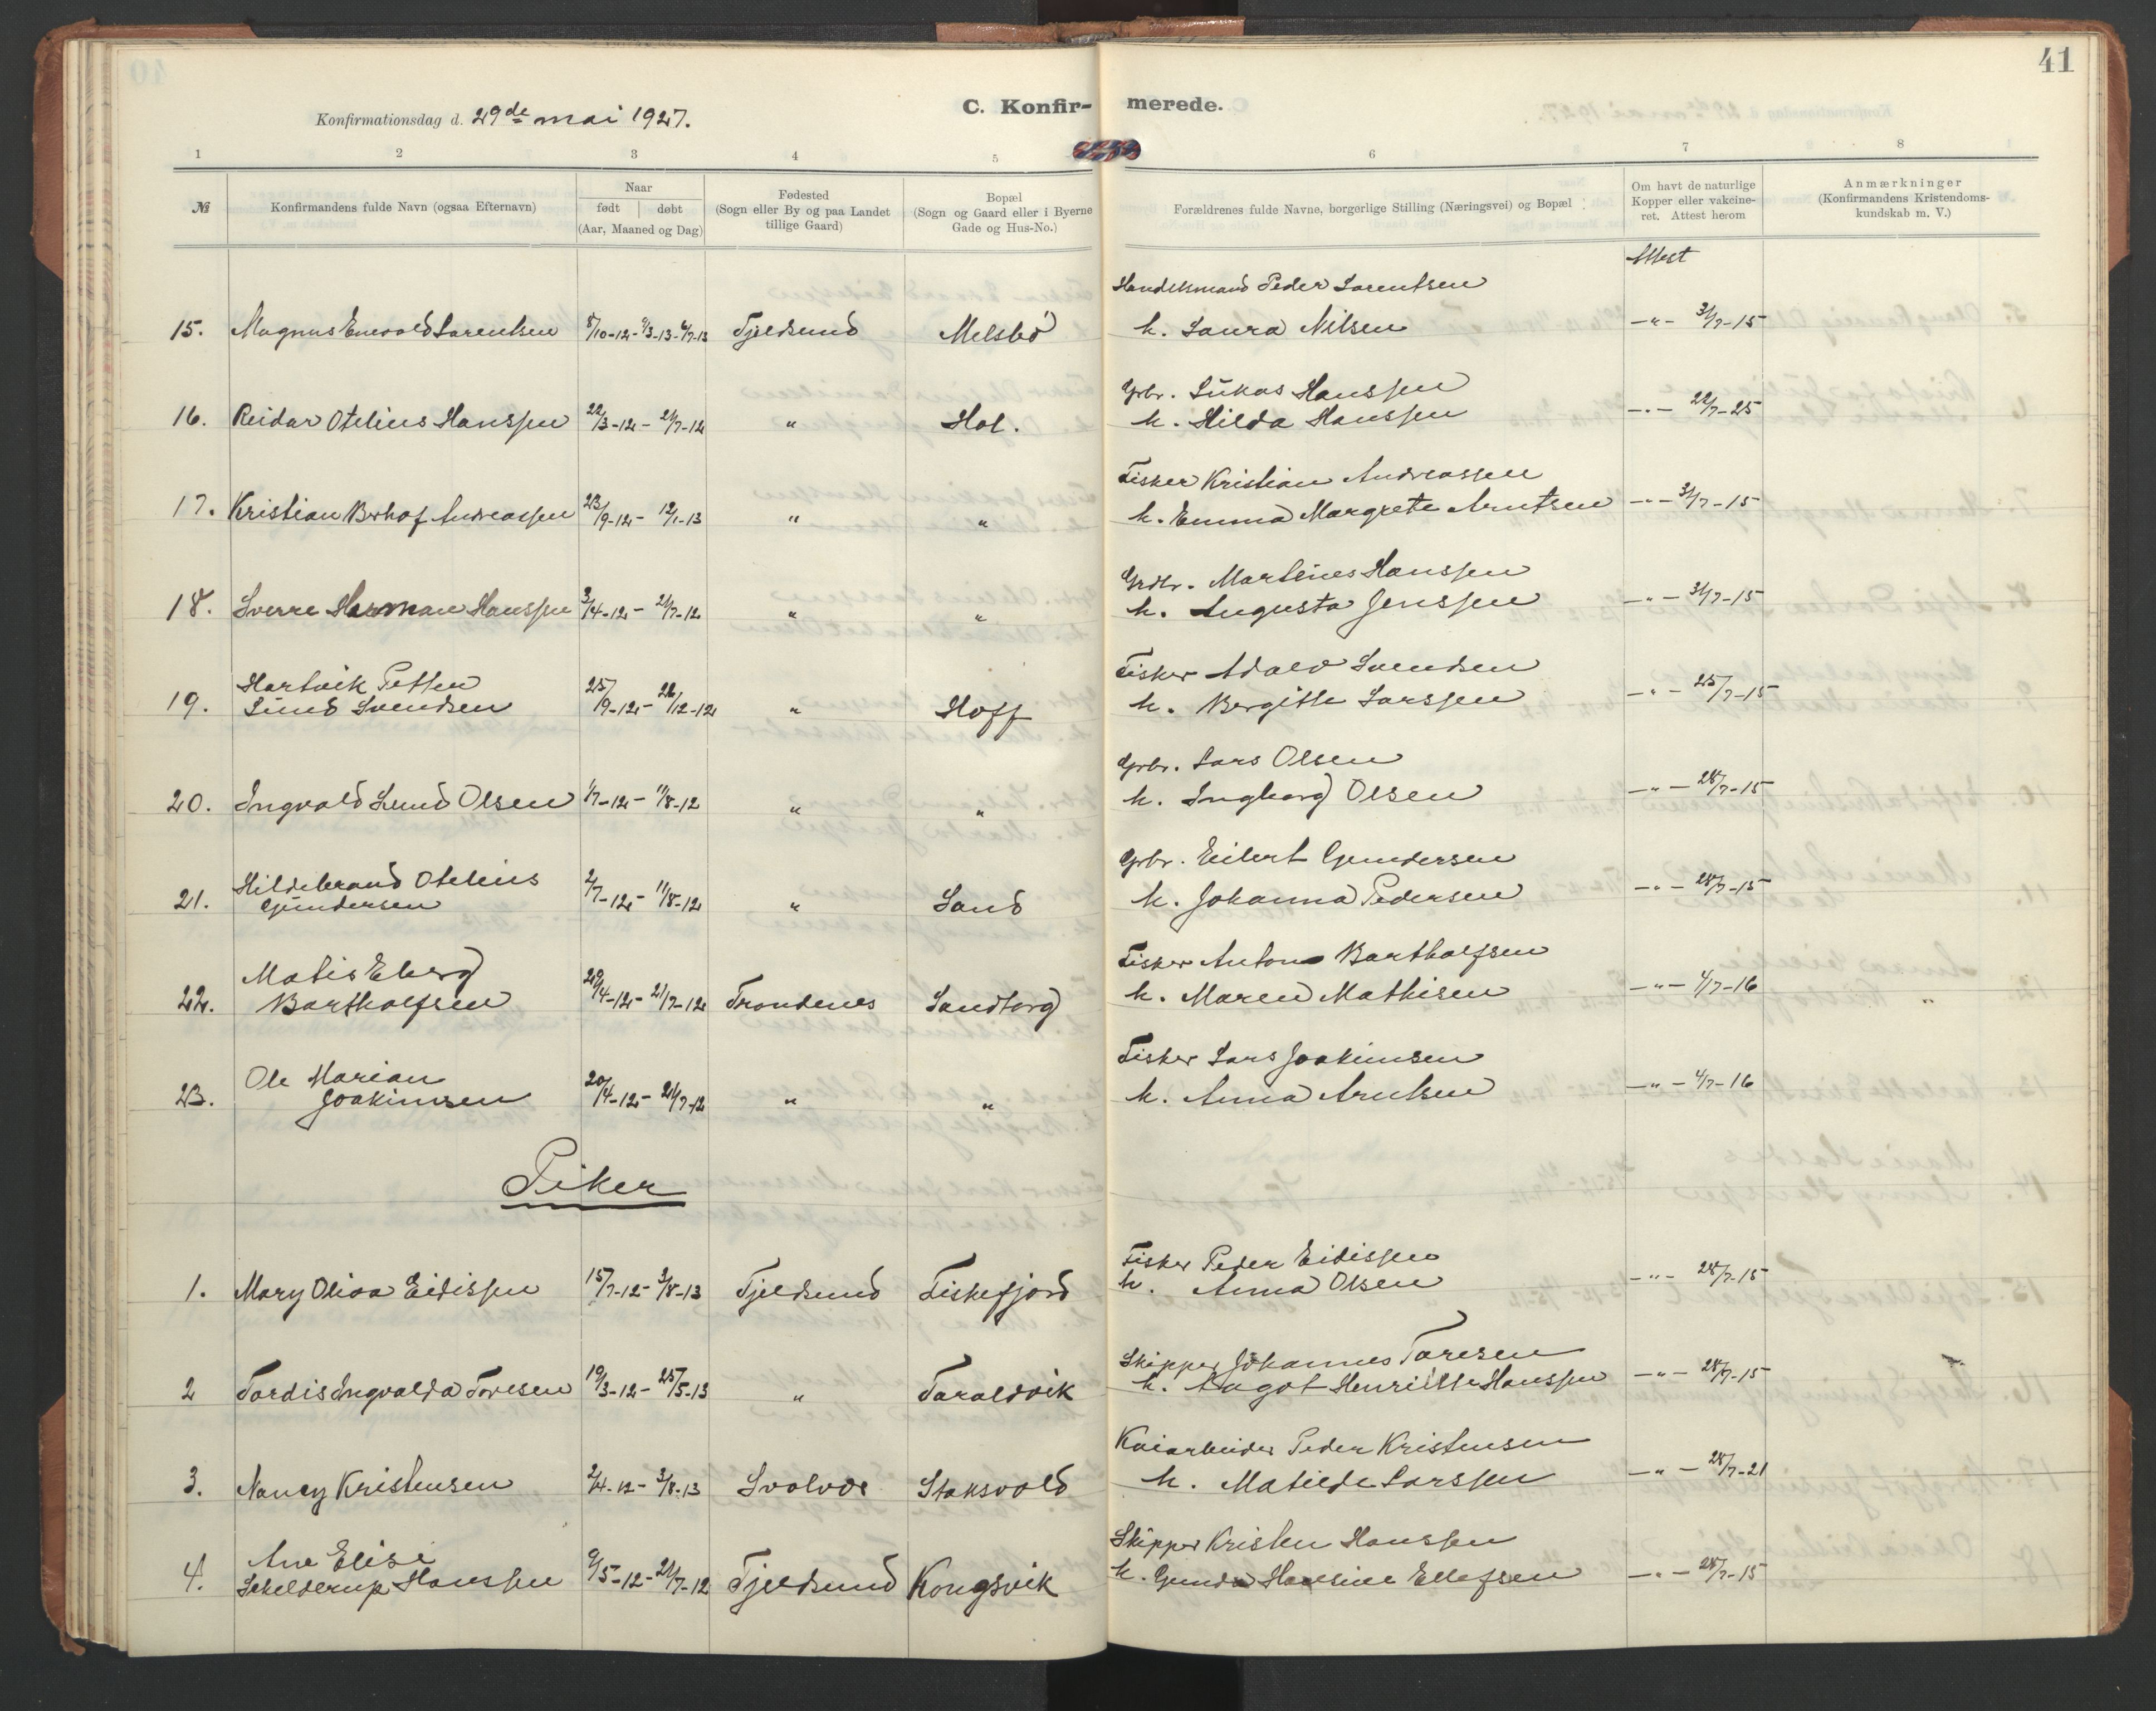 41
Konfirmationsdag d. 29de mai 1927.
C. Konfir- merede.
1 2 3 4 5 6 7 8
№
Konfirmandens fulde Navn (ogsaa Efternavn)
Naar
født døbt
(Aar, Maaned og Dag)
Fødested
(Sogn eller By og paa Landet
tillige Gaard)
Bopæl
(Sogn og Gaard eller i Byerne
Gade og Hus-No.)
Forældrenes fulde Navne, borgerlige Stilling (Næringsvei) og Bopæl
Om havt de naturlige
Kopper eller vakcine-
ret. Attest herom
Anmærkninger
(Konfirmandens Kristendoms-
kundskab m. V.)
Attest
Handelsmand Peder Lorentsen
15. Magnus Enevold Lorentsen 8/10-12 - 9/3-13 - 6/7-13 Tjeldsund Melsbö h. Laura Nilsen -"- 31/7-15
Grbr. Lukas Hanssen
16. Reidar Otelius Hanssen 22/3-12 - 21/7-12 " Hol. h. Hilda Hanssen -"- 22/7-25
Fisker Kristian Andreassen
17. Kristian Berhof Andreassen 23/9-12 - 12/1-13 " " h. Emma Margrete Arntsen -"- 31/7-15
Grdbr. Martines Hanssen
18. Sverre Herman Hanssen 3/4-12 - 21/7-12 " " h. Augusta Jenssen -"- 31/7-15
Hartvik Petter
Fisker Adolv Svendsen
19. Lund Svendsen 25/9-12 - 26/12-12 " Hoff h. Bergitte Larssen -"- 25/7-15
Grbr. Lars Olsen
20. Ingvald Lund Olsen 1/7-12 - 11/8-12 " " h. Ingborg Olsen -"- 28/7-15
Hildebrand Otelius
Grbr. Eilert Gundersen
21. Gundersen 2/7-12 - 11/8-12 " Sand h. Johanna Pedersen -"- 28/7-15
Matis Eberg
Fisker Anton Bartholfsen
22. Bartholfsen 29/4-12 - 21/7-12 Trondenes Sandtorg h. Maren Mathisen -"- 4/7-16
Ole Marian
Fisker Lars Joakimsen
23. Joakimsen 20/4-12 - 21/7-12 " " h. Anna Arntsen -"- 4/7-16
Piker
Fisker Peder Eidissen
1. Mary Oliva Eidissen 15/7-12 - 3/8-13 Tjeldsund Fiskefjord h. Anna Olsen -"- 28/7-15
Skipper Johannes Toresen
2 Tordis Ingvalda Toresen 19/3-12 - 25/5-13 " Taraldvik h. Aagot Henriette Hanssen -"- 28/7-15
Kaiarbeider Peder Kristensen
3. Nancy Kristensen 2/4-12 - 3/8-13 Svolvær Staksvold h. Matilde Larssen -"- 28/7-21
Ane Elise
Skipper Kristen Hanssen
4. Schelderup Hanssen 9/5-12 - 21/7-12 Tjeldsund Kongsvik h. Gunda Hansine Ellefsen -"- 28/7-15